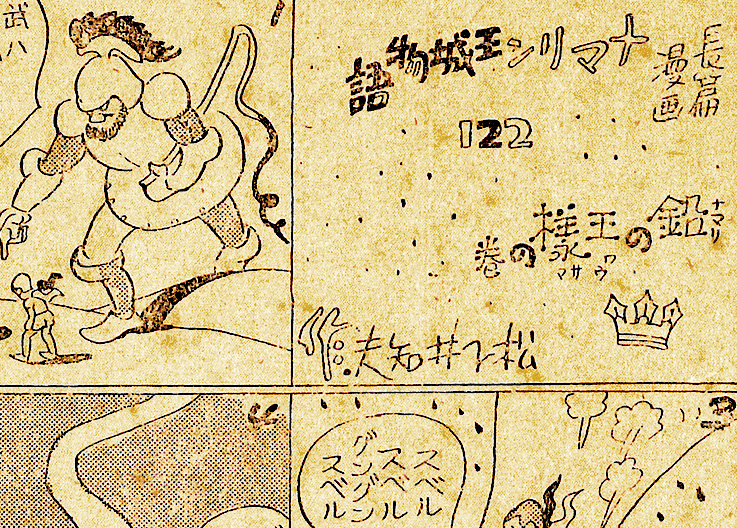 長篇
漫画
ナマリン王城物語
122
鉛の王樣の巻
ナマリ
ワウ
サマ
松下井知夫
作
武ハ
3
4
スベル
スベル
グングン
スベル